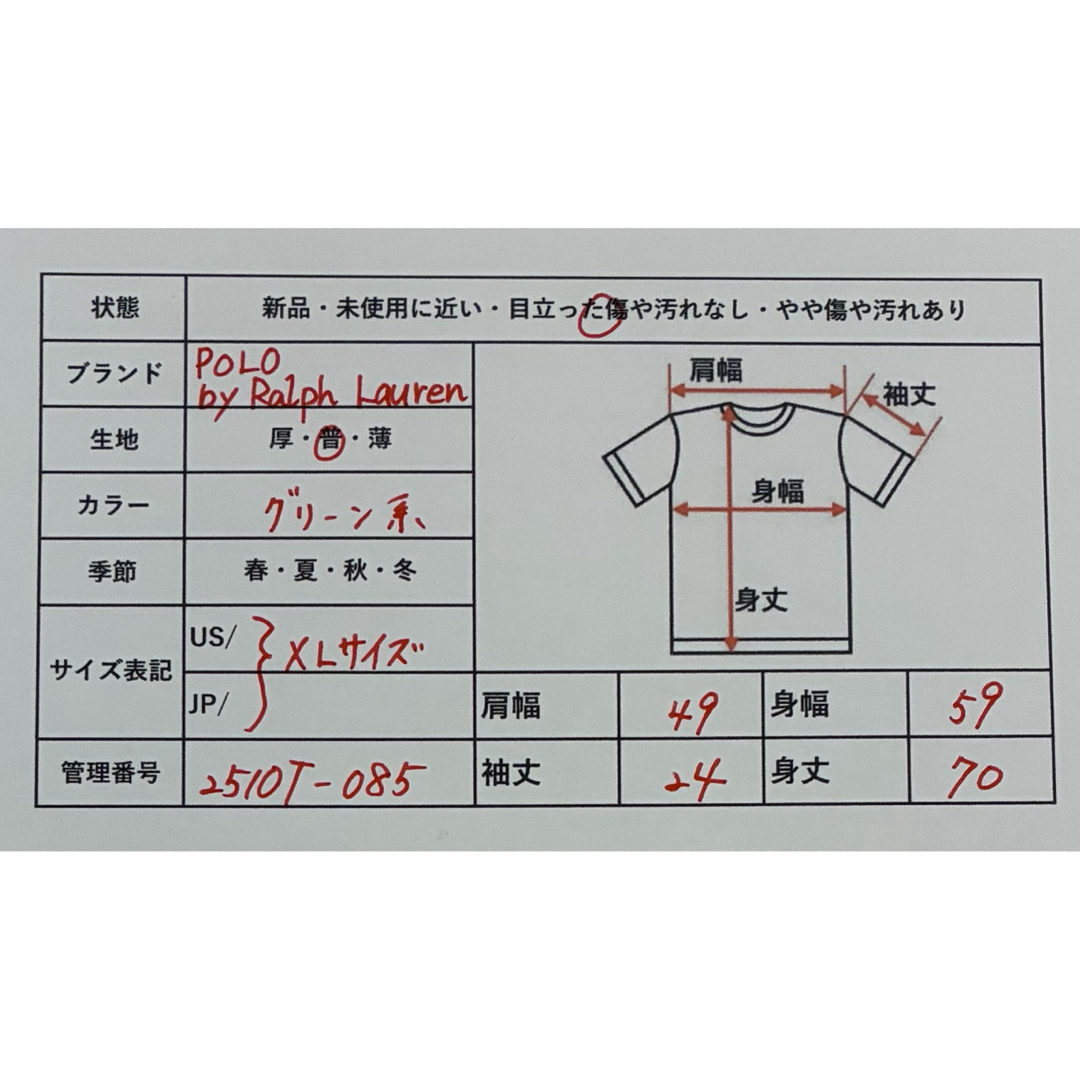 状態 新品・未使用に近い・目立った傷や汚れなし・やや傷や汚れあり
ブランド POLO
by Ralph Lauren
生地 厚・普・薄
カラー グリーン系、
季節 春・夏・秋・冬
サイズ表記 US/ XLサイズ
JP/
管理番号 2510T-085
肩幅
袖丈
身幅
身丈
肩幅 49 身幅 59
袖丈 24 身丈 70